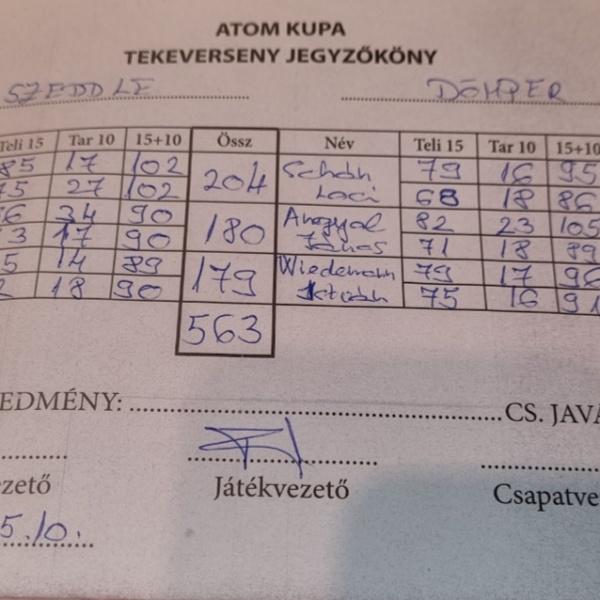 ATOM KUPA
TEKEVERSENY JEGYZŐKÖNY
SZEDD LE DÖMPER
Teli 15 Tar 10 15+10 Össz Név Teli 15 Tar 10 15+10
85 17 102 204 Schón Laci 79 16 95
75 27 102 68 18 86
6 34 90 180 Angyal János 82 23 105
3 17 90 71 18 89
5 14 89 179 Wiedemann 79 17 96
2 18 90 75 16 91
563
EDMÉNY: CS. JAVÁ
zető Játékvezető Csapatve
5.10.